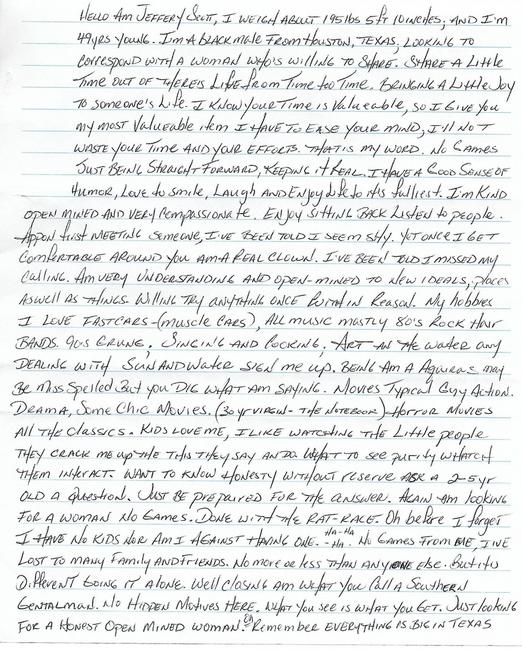 Hello Am Jeffery Scott, I weigh about 195lbs 5ft 10inches; and I'm
49yrs young. I'm a black male from Houston, Texas, looking to
correspond with a woman who's willing to share. Share a little
time out of thereis life from time too time. Bringing a little joy
to someone's life. I know your time is valueable, so I give you
my most valueable item I have to ease your mind, I'll not
waste your time and your efforts. That is my word. No games
just being straight forward, keeping it real. I have a good sense of
humor, love to smile, laugh and enjoy life to its fulliest. I'm kind
open mined and very compassionate. Enjoy sitting back listen to people.
Appon first meeting someone, I've been told I seem shy. Yet once I get
comfortable around you am a real clown. I've been told I missed my
calling. Am very understanding and open-mined to new ideals, places
aswell as things. Willing try anything once within reason. My hobbies
I love fastcars-(muscle cars), all music mostly 80's rock hair
bands. 90's grung, singing and cooking, art- in the water any
dealing with sun and water sign me up. Being am a Aguiras may
be miss spelled but you dig what am saying. Movies typical guy action.
Drama, some chic movies. (30 yr virgin - the notebook) - Horror movies
all the classics. Kids love me, I like watching the little people
they crack me up the this they say and do what to see purity whatch
them interact. Want to know honesty without reserve ask a 2-5yr
old a question. Just be prepared for the answer. Again am looking
for a woman no games. Done with the rat-race. Oh before I forget
I have no kids nor am I against having one. Ha-Ha -Ha. No games from me, I've
lost to many family and friends. No more or less than any one else. But its
different going it alone. Well closing am what you call a southern
gentalman. No hidden motives here. What you see is what you get. Just looking
for a honest open mined woman. Oh remember everything is big in Texas